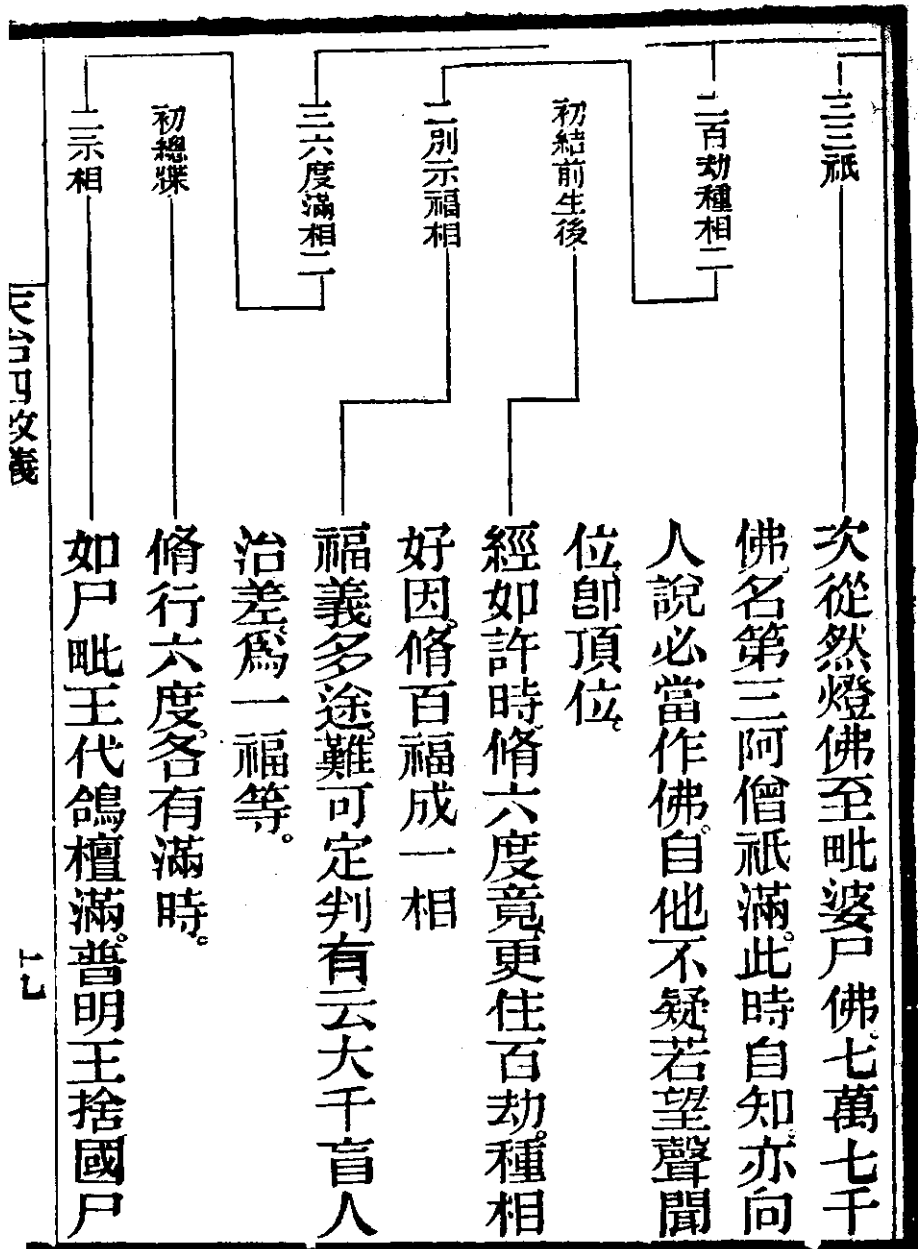 三三祇
次從然燈佛至毗婆尸佛、七萬七千
佛、名第三阿僧祇滿。此時自知、亦向
人說必當作佛。自他不疑、若望聲聞
位、卽頂位、
二百劫種相二
初結前生後
經如許時、脩六度竟、更住百劫。種相
好因。脩百福成一相
二別示福相
福義多途、難可定判有云大千盲人
治差、爲一福等。
三六度滿相二
初總牒
脩行六度、各有滿時。
二示相
如尸毗王代鴿檀滿。普明王捨國尸
天台四教儀